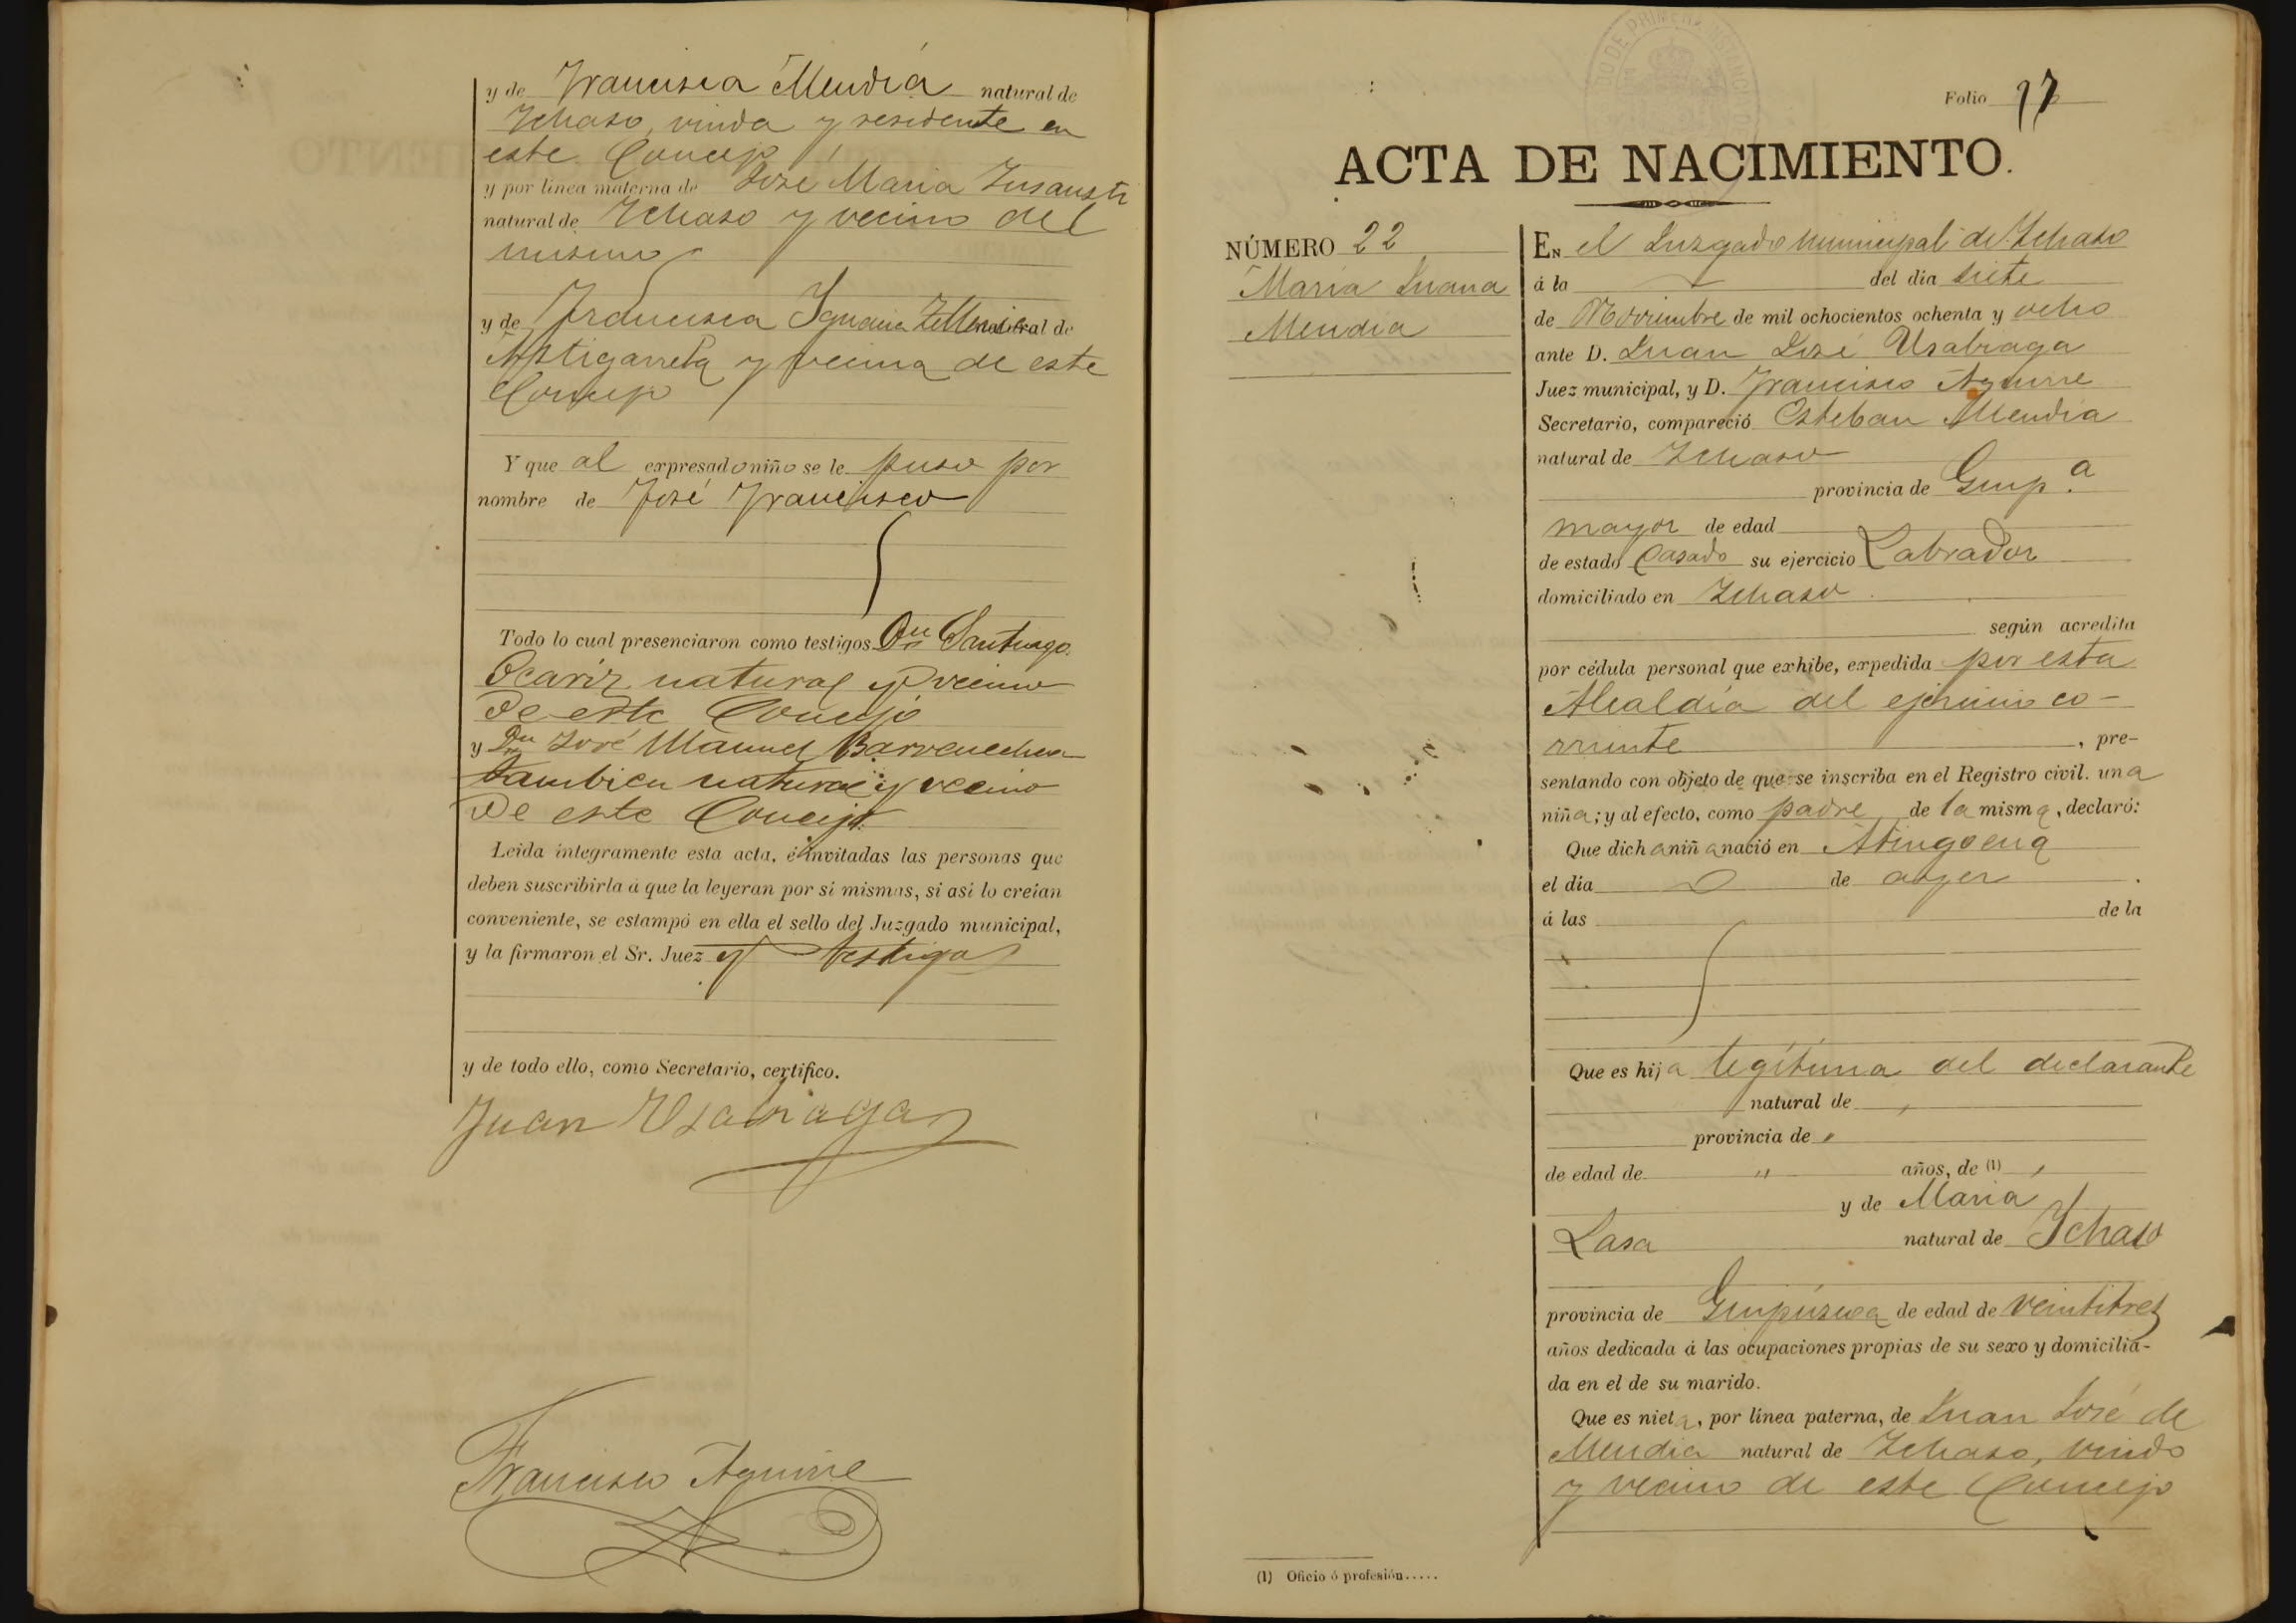 y de Francisca Mendia natural de
Ichaso, viuda y residente en
este Concejo
y por línea materna de José Maria Insausti
natural de Ichaso y vecino del
mismo
y de Francisca Ignacia natural de
Astigarreta y vecina de este
Concejo
Y que al expresado niño se le puso por
nombre de José Francisco
Todo lo cual presenciaron como testigos Dn Santiago
Ocariz natural y vecino
de este Concejo
y Dn José Manuel Barrenechea
tambien natural y vecino
de este Concejo
Leída íntegramente esta acta, é invitadas las personas que
deben suscribirla á que la leyeran por sí mismas, si así lo creían
conveniente, se estampó en ella el sello del Juzgado municipal,
y la firmaron el Sr. Juez y testigos
y de todo ello, como Secretario, certifico.
Juan Usabiaga
Francisco Aguirre
Folio
ACTA DE NACIMIENTO.
NÚMERO 22
Maria Juana
Mendia
EN el Juzgado municipal de Ichaso
á la del día siete
de Noviembre de mil ochocientos ochenta y ocho
ante D. Juan José Usabiaga
Juez municipal, y D. Francisco Aguirre
Secretario, compareció Esteban Mendia
natural de Ichaso
provincia de Guip.a
mayor de edad
de estado Casado su ejercicio Labrador
domiciliado en Ichaso
según acredita
por cédula personal que exhibe, expedida por esta
Alcaldía del ejercicio co-
rriente , pre-
sentando con objeto de que se inscriba en el Registro civil. una
niña; y al efecto, como padre de la misma, declaró:
Que dicha niña nació en Atingoena
el día de ayer
á las de la
Que es hija legítima del declarante
natural de "
provincia de "
de edad de " años, de (1) "
y de Maria
Lasa natural de Ichaso
provincia de Guipúzcoa de edad de veintitres
años dedicada á las ocupaciones propias de su sexo y domicilia-
da en el de su marido.
Que es nieta, por línea paterna, de Juan José de
Mendia natural de Ichaso, viudo
y vecino de este Concejo
(1) Oficio ó profesión.....